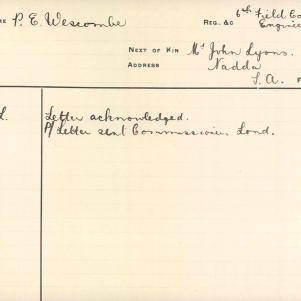 ME P. E. Wescombe
REG. &C 6th Field Co
Enginee
NEXT OF KIN Mr John Lyons.
ADDRESS Nadda
S.A. F
L. Letter acknowledged.
P/ Letter sent Commissioner, Lond.